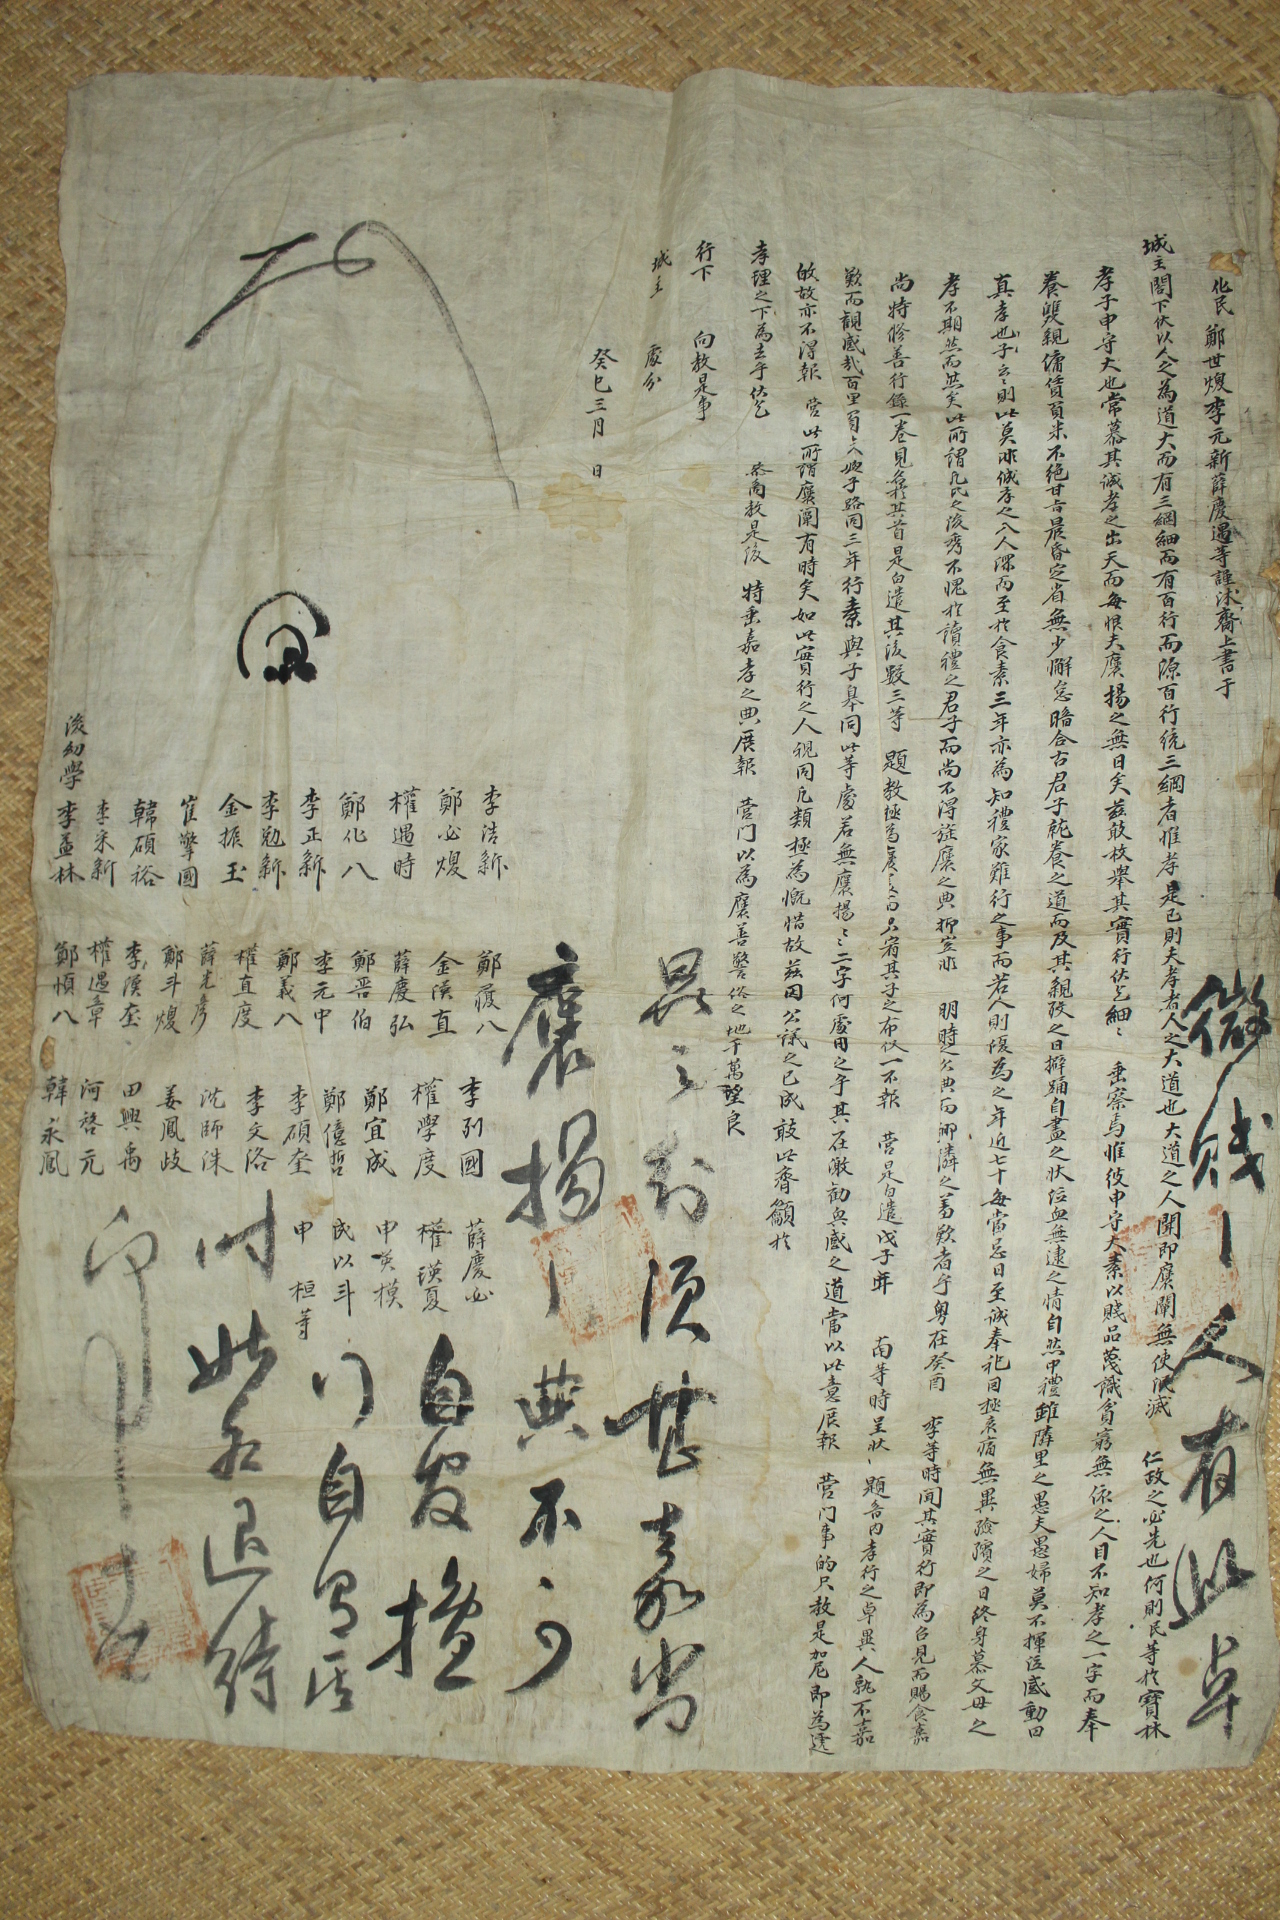 化民鄭世煥李元新薛慶遇等謹沐齋上書于
城主閤下伏以人之為道大而有三綱細而有百行而源百行統三綱者惟孝是已則夫孝者人之大道也大道之人聞即褒闡無使泯滅 仁政之必先也何則民等於寶林
孝子申守大也常慕其誠孝之出天而每恨夫褒揚之無日矣茲敢枚擧其實行伏乞細〻 垂察焉惟彼申守大素以賤品蔑識貧窮無依之人目不知孝之一字而奉
養雙親傭賃負米不絶甘旨晨昏定省無少懈怠暗合古君子就養之道而及其親歿之日擗踊自盡之狀泣血無逮之情自然中禮雖隣里之愚夫愚婦莫不揮泣感動曰
真孝也子云〻則此莫非誠孝之人深而至於食素三年亦為知禮家難行之事而若人則復為之年近七十每當忌日至誠奉祀因極哀痛無異殮殯之日終身慕父母之
孝不期然而然矣此所謂凡民之後秀不愧於讀禮之君子而尚不得旌褒之典抑豈非 明時之欠典而鄕隣之羞歎者乎粤在癸酉 李等時聞其實行即為召見而賜食嘉
尚特修善行錄一卷見 其首是白遣其後數三等 題敎極為 只宥其子之布役一不報 營是白遣戊子年 南等時呈狀 題音內孝行之卓異人孰不嘉
歎而觀感哉百里 子路同三年行素與子皐同此等處若無褒揚〻〻二字何處用之乎其在激勸興感之道當以此意展報 營門事的只敎是加尼即為遞
故亦不得報 營此所謂褒闡有時矣如此實行之人視同凡類極為慨惜故茲因公議之已成敢此齊籲於
孝理之下為去乎伏乞 敎是後 特垂嘉孝之典展報 營門以為褒善警俗之地千萬望良
行下 向敎是事
城主 處分
癸巳三月 日
李浩新 鄭履八 李列國 薛慶必
鄭必煥 金漢直 權學度 權瑛夏
權遇時 薛慶弘 鄭宜成 申英模
鄭化八 鄭晋伯 鄭億哲 民以斗
李正新 李元中 李碩奎 申桓等
李勉新 鄭義八 李文洛
金振玉 權直度 沈師洙
崔擎國 薛光彦 姜鳳歧
韓碩裕 鄭斗煥 田興禹
李采新 李漢奎 河啓元
後幼學 李孟林 權遇章 韓永鳳
鄭愼八
微賤 人有此卓
異之行須甚嘉尚
褒揚 典不可
自 擅
自
此 退待